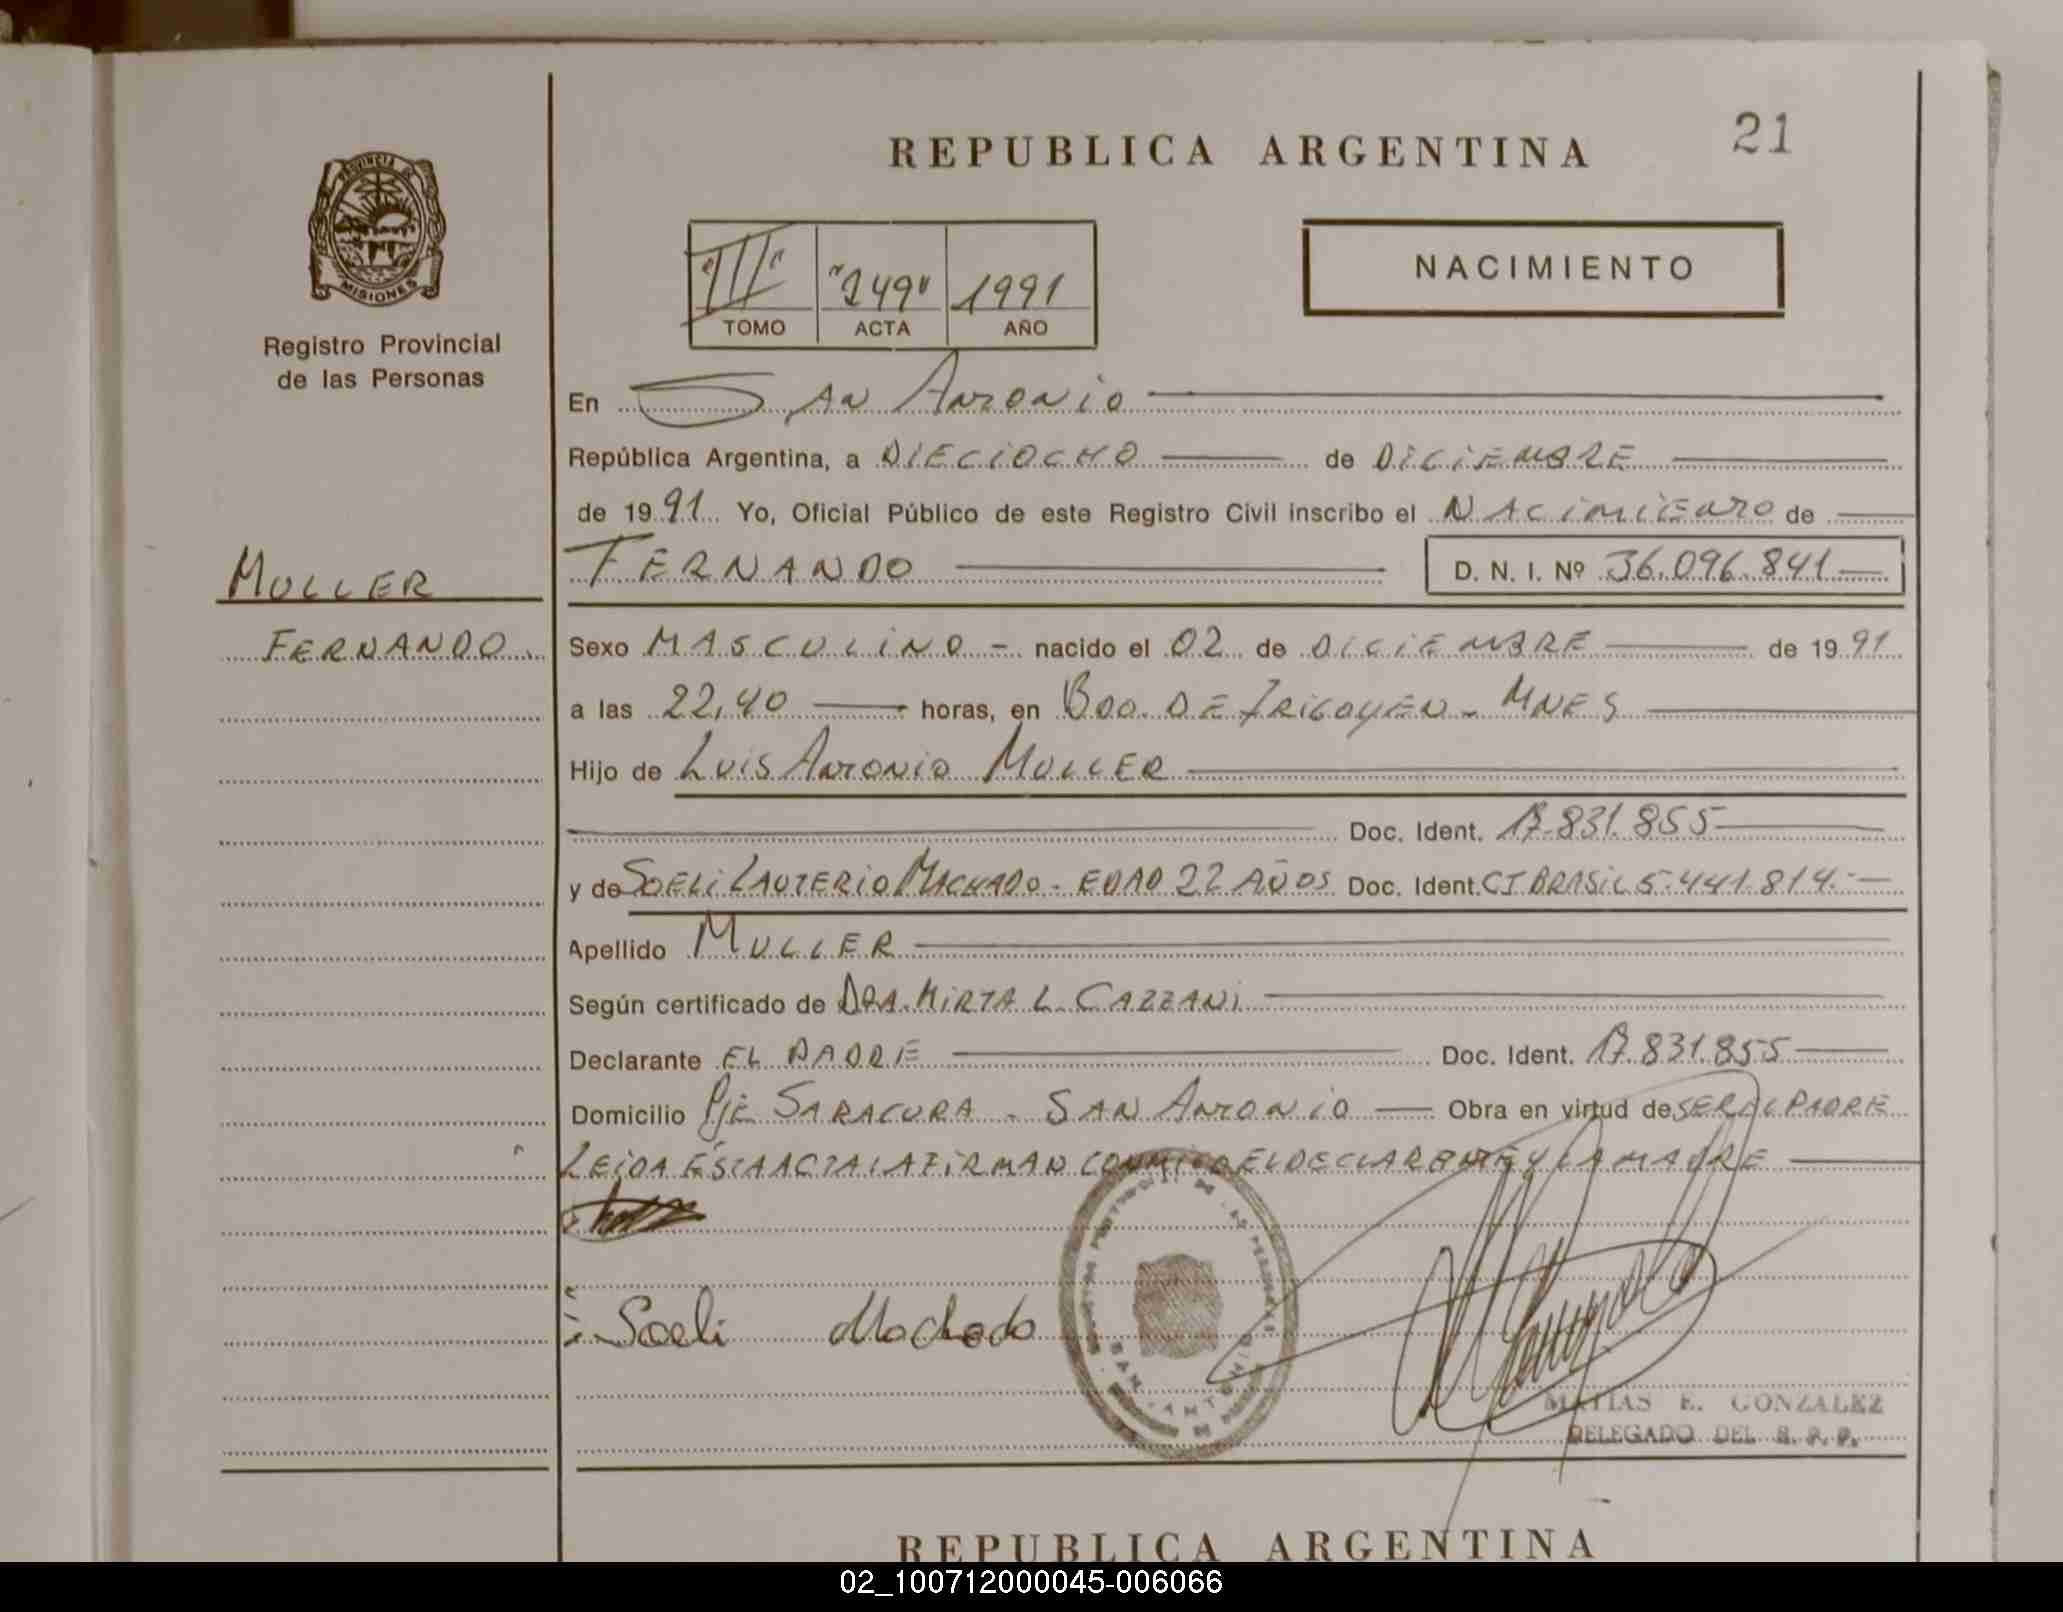 21
REPUBLICA ARGENTINA
PROVINCIA DE
MISIONES
Registro Provincial
de las Personas
"III" "249" 1991
TOMO ACTA AÑO
NACIMIENTO
En SAN ANTONIO
República Argentina, a DIECIOCHO de DICIEMBRE
de 1991 Yo, Oficial Público de este Registro Civil inscribo el NACIMIENTO de
MULLER
FERNANDO D. N. I. Nº 36.096.841
FERNANDO
Sexo MASCULINO - nacido el 02 de DICIEMBRE de 1991
a las 22,40 horas, en BDO. DE IRIGOYEN - MNES
Hijo de LUIS ANTONIO MULLER
Doc. Ident. 17.831.855
y de SOELI LAUTERIO MACHADO - EDAD 22 AÑOS Doc. Ident. CI BRASIL 5.441.814.-
Apellido MULLER
Según certificado de DRA. MIRTA L. CAZZANI
Declarante EL PADRE Doc. Ident. 17.831.855
Domicilio PJE SARACURA - SAN ANTONIO Obra en virtud de SER EL PADRE
LEIDA ESTA ACTA LA FIRMAN CONMIGO EL DECLARANTE Y LA MADRE
Soeli Machado
SAN ANTONIO
MATIAS E. GONZALEZ
DELEGADO DEL R. P. P.
REPUBLICA ARGENTINA
02_100712000045-006066